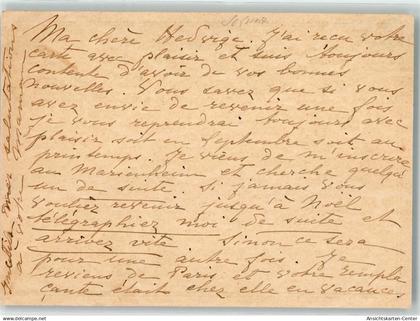 Ma chère Hedwige. J'ai reçu votre
carte avec plaisir et suis toujours
contente d'avoir de vos bonnes
nouvelles. Vous savez que si vous
avez envie de revenir une fois
je vous reprendrai toujours avec
plaisir soit en Septembre soit au
printemps. Je viens de m'inscrire
au Marienheim et cherche quelqu'
un de suite. Si jamais vous
vouliez revenir jusqu'à Noël
télégraphiez moi de suite et
arrivez vite. Sinon ce sera
pour une autre fois. Je
reviens de Paris et votre remplaçante
çante était chez elle en vacance.
mes salutations
à votre maman
© Ansichtskarten-Center.de